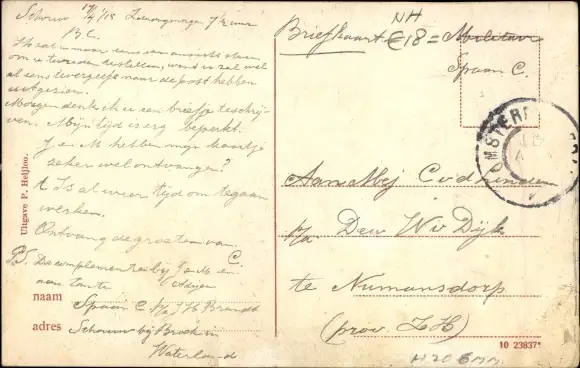 Schouw 17/4/15 Zaterdagmorgen 7½ uur
B C.
Ik zal u maar eens een ansicht sturen,
om u tevreden te stellen, want u zal wel
al eens tevergeefs naar de post hebben
uitgezien.
Morgen denk ik u een briefje te schrij-
ven. Mijn tijd is erg beperkt.
J en M hebben mijn kaartje
zeker wel ontvangen?
't Is al weer tijd om te gaan
werken.
Ontvang de groeten van
C.
PS. De complementen bij J en M en
aan tante Arijen
naam Spaan C. p/a J H Brandt
adres Schouw bij Broek in
Waterland
Uitgave P. Heijloo.
NH
Briefkaart € 18 = Militair
Spaan C.
AMSTERD
Aan Mej C v d Linden
p/a Dew Wv Dijk
te Numansdorp
(prov. ZH)
10 23837*
H 20 6 MM.